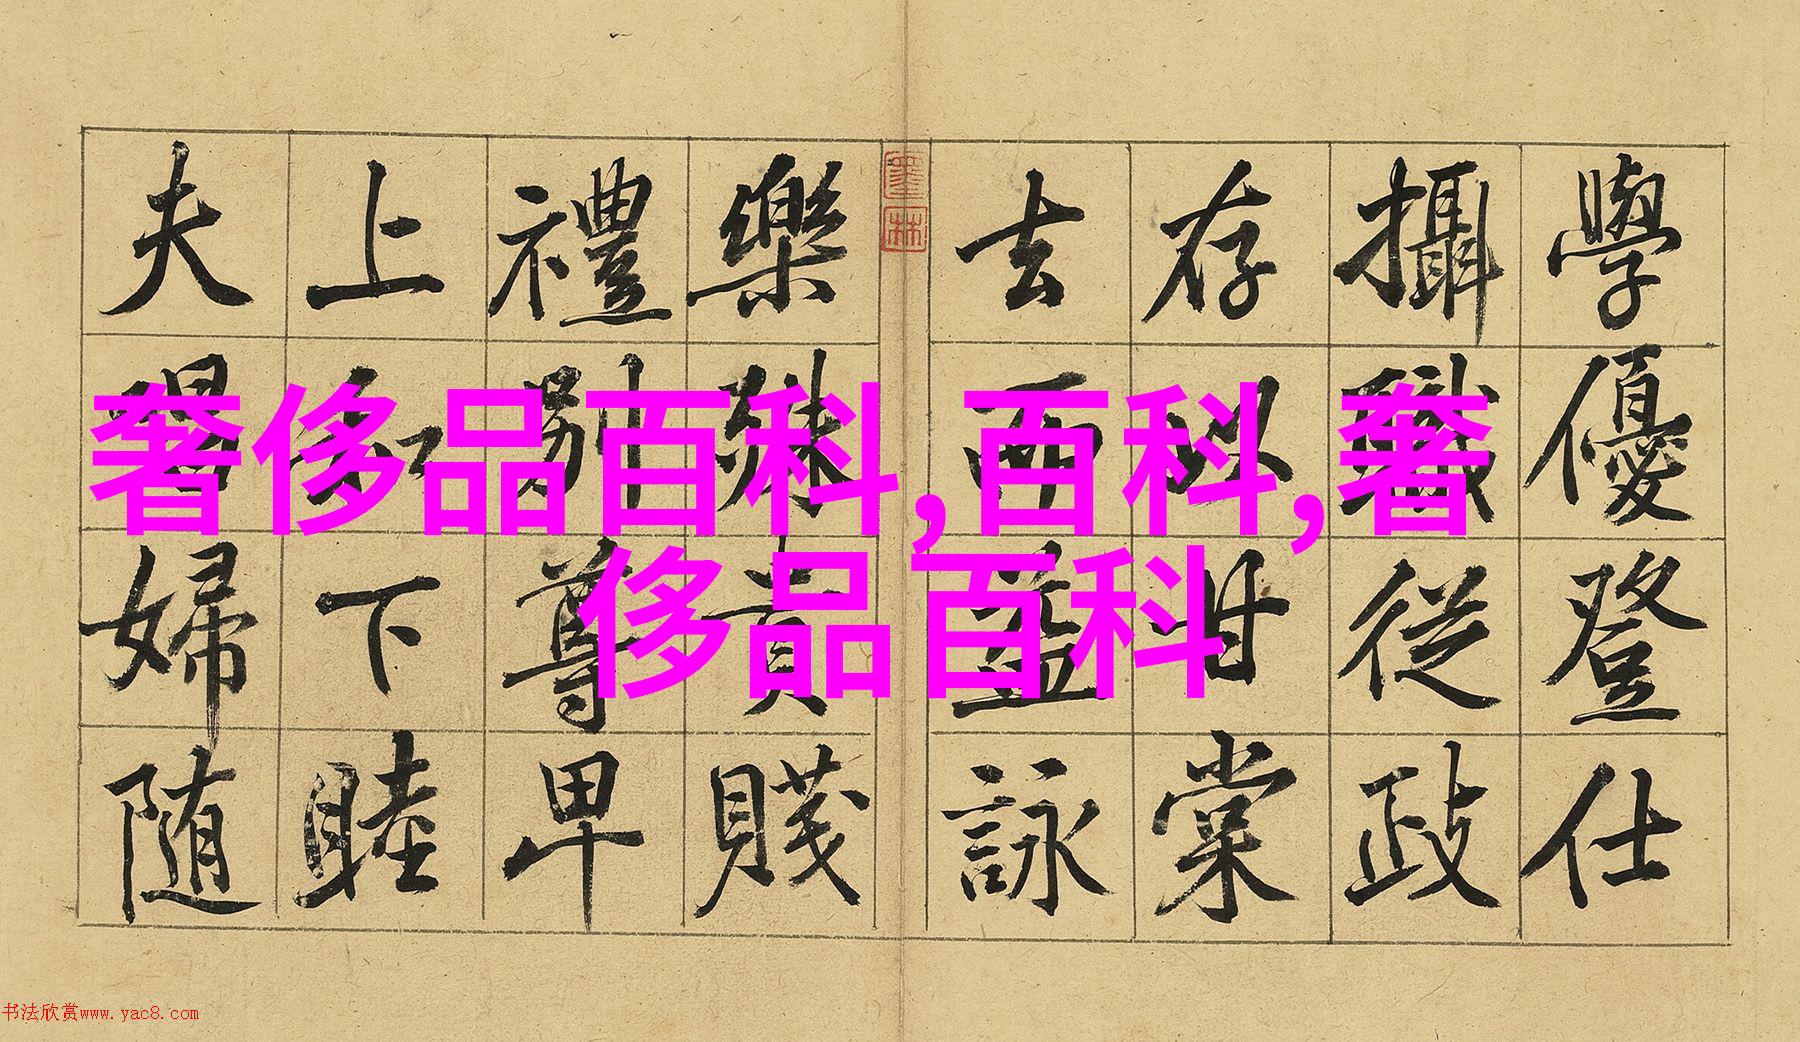 學優登仕
攝職從政
存以甘棠
去而益詠
墨林
樂殊貴賤
禮別尊卑
上和下睦
夫唱婦随
奢侈品百科,百科,奢
侈品百科
书法欣赏www.yac8.com